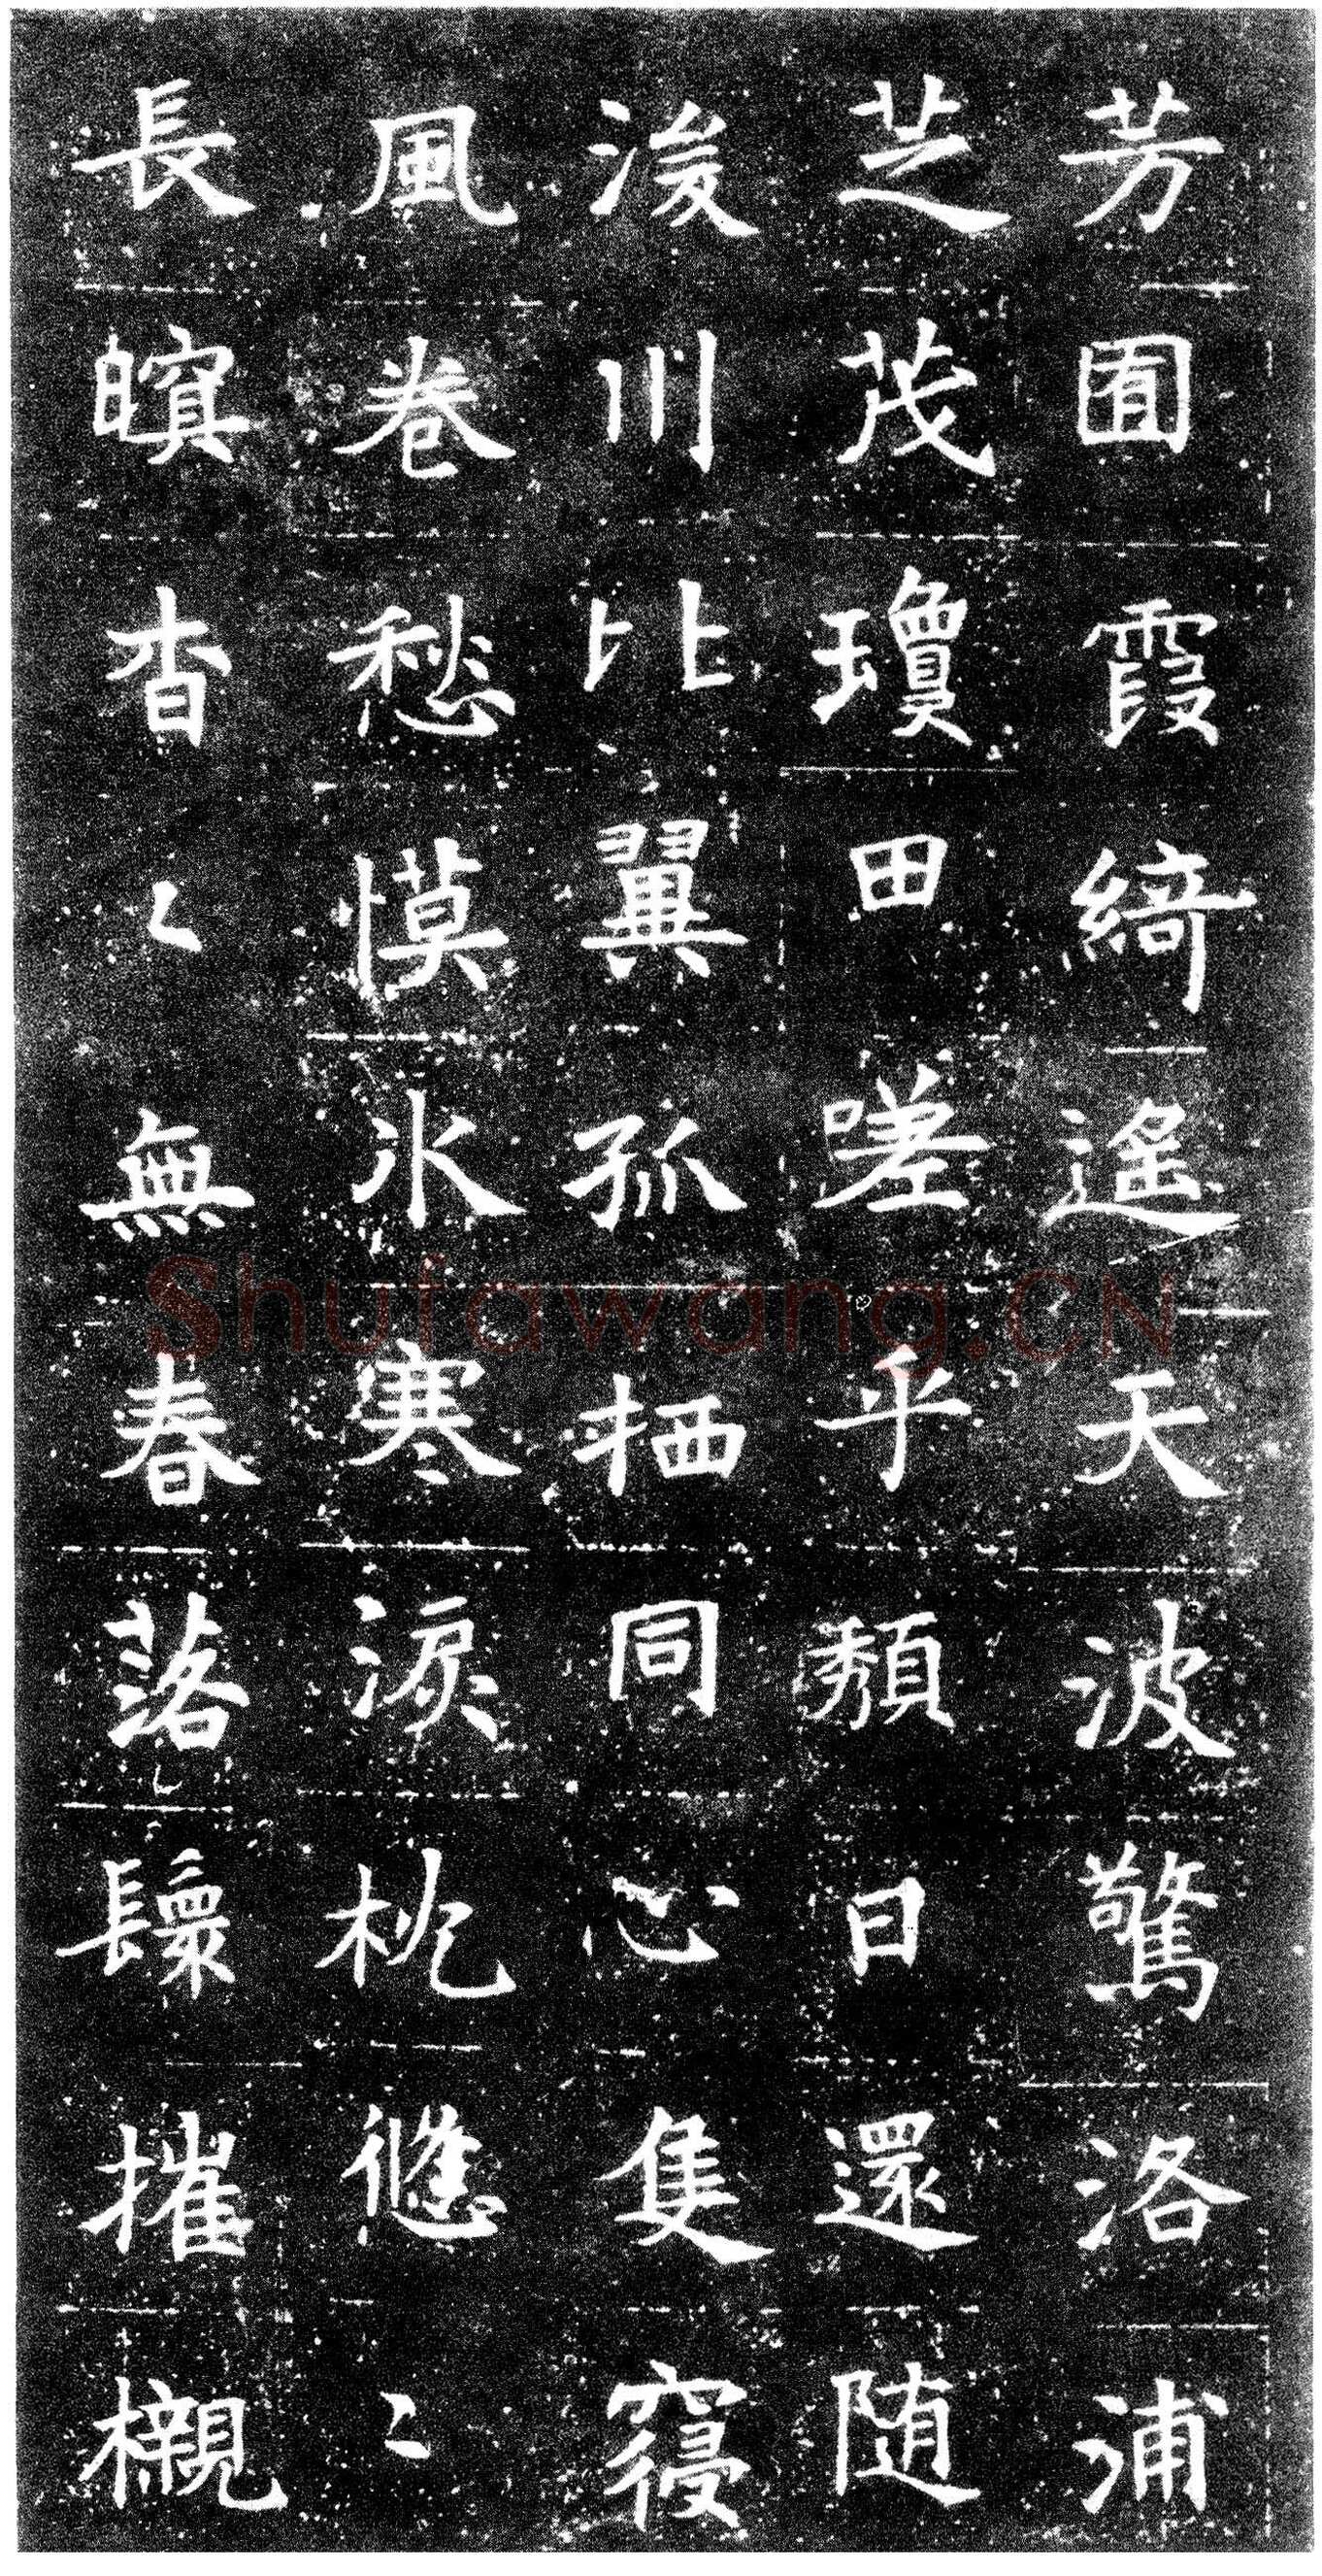 芳囿霞綺遥天波驚洛浦
芝茂瓊田嗟乎頹日還随
浚川比翼孤栖同心隻寝
風卷愁慔氷寒淚枕悠〻
長暝杳〻無春落鬟摧櫬
Shufawang.CN